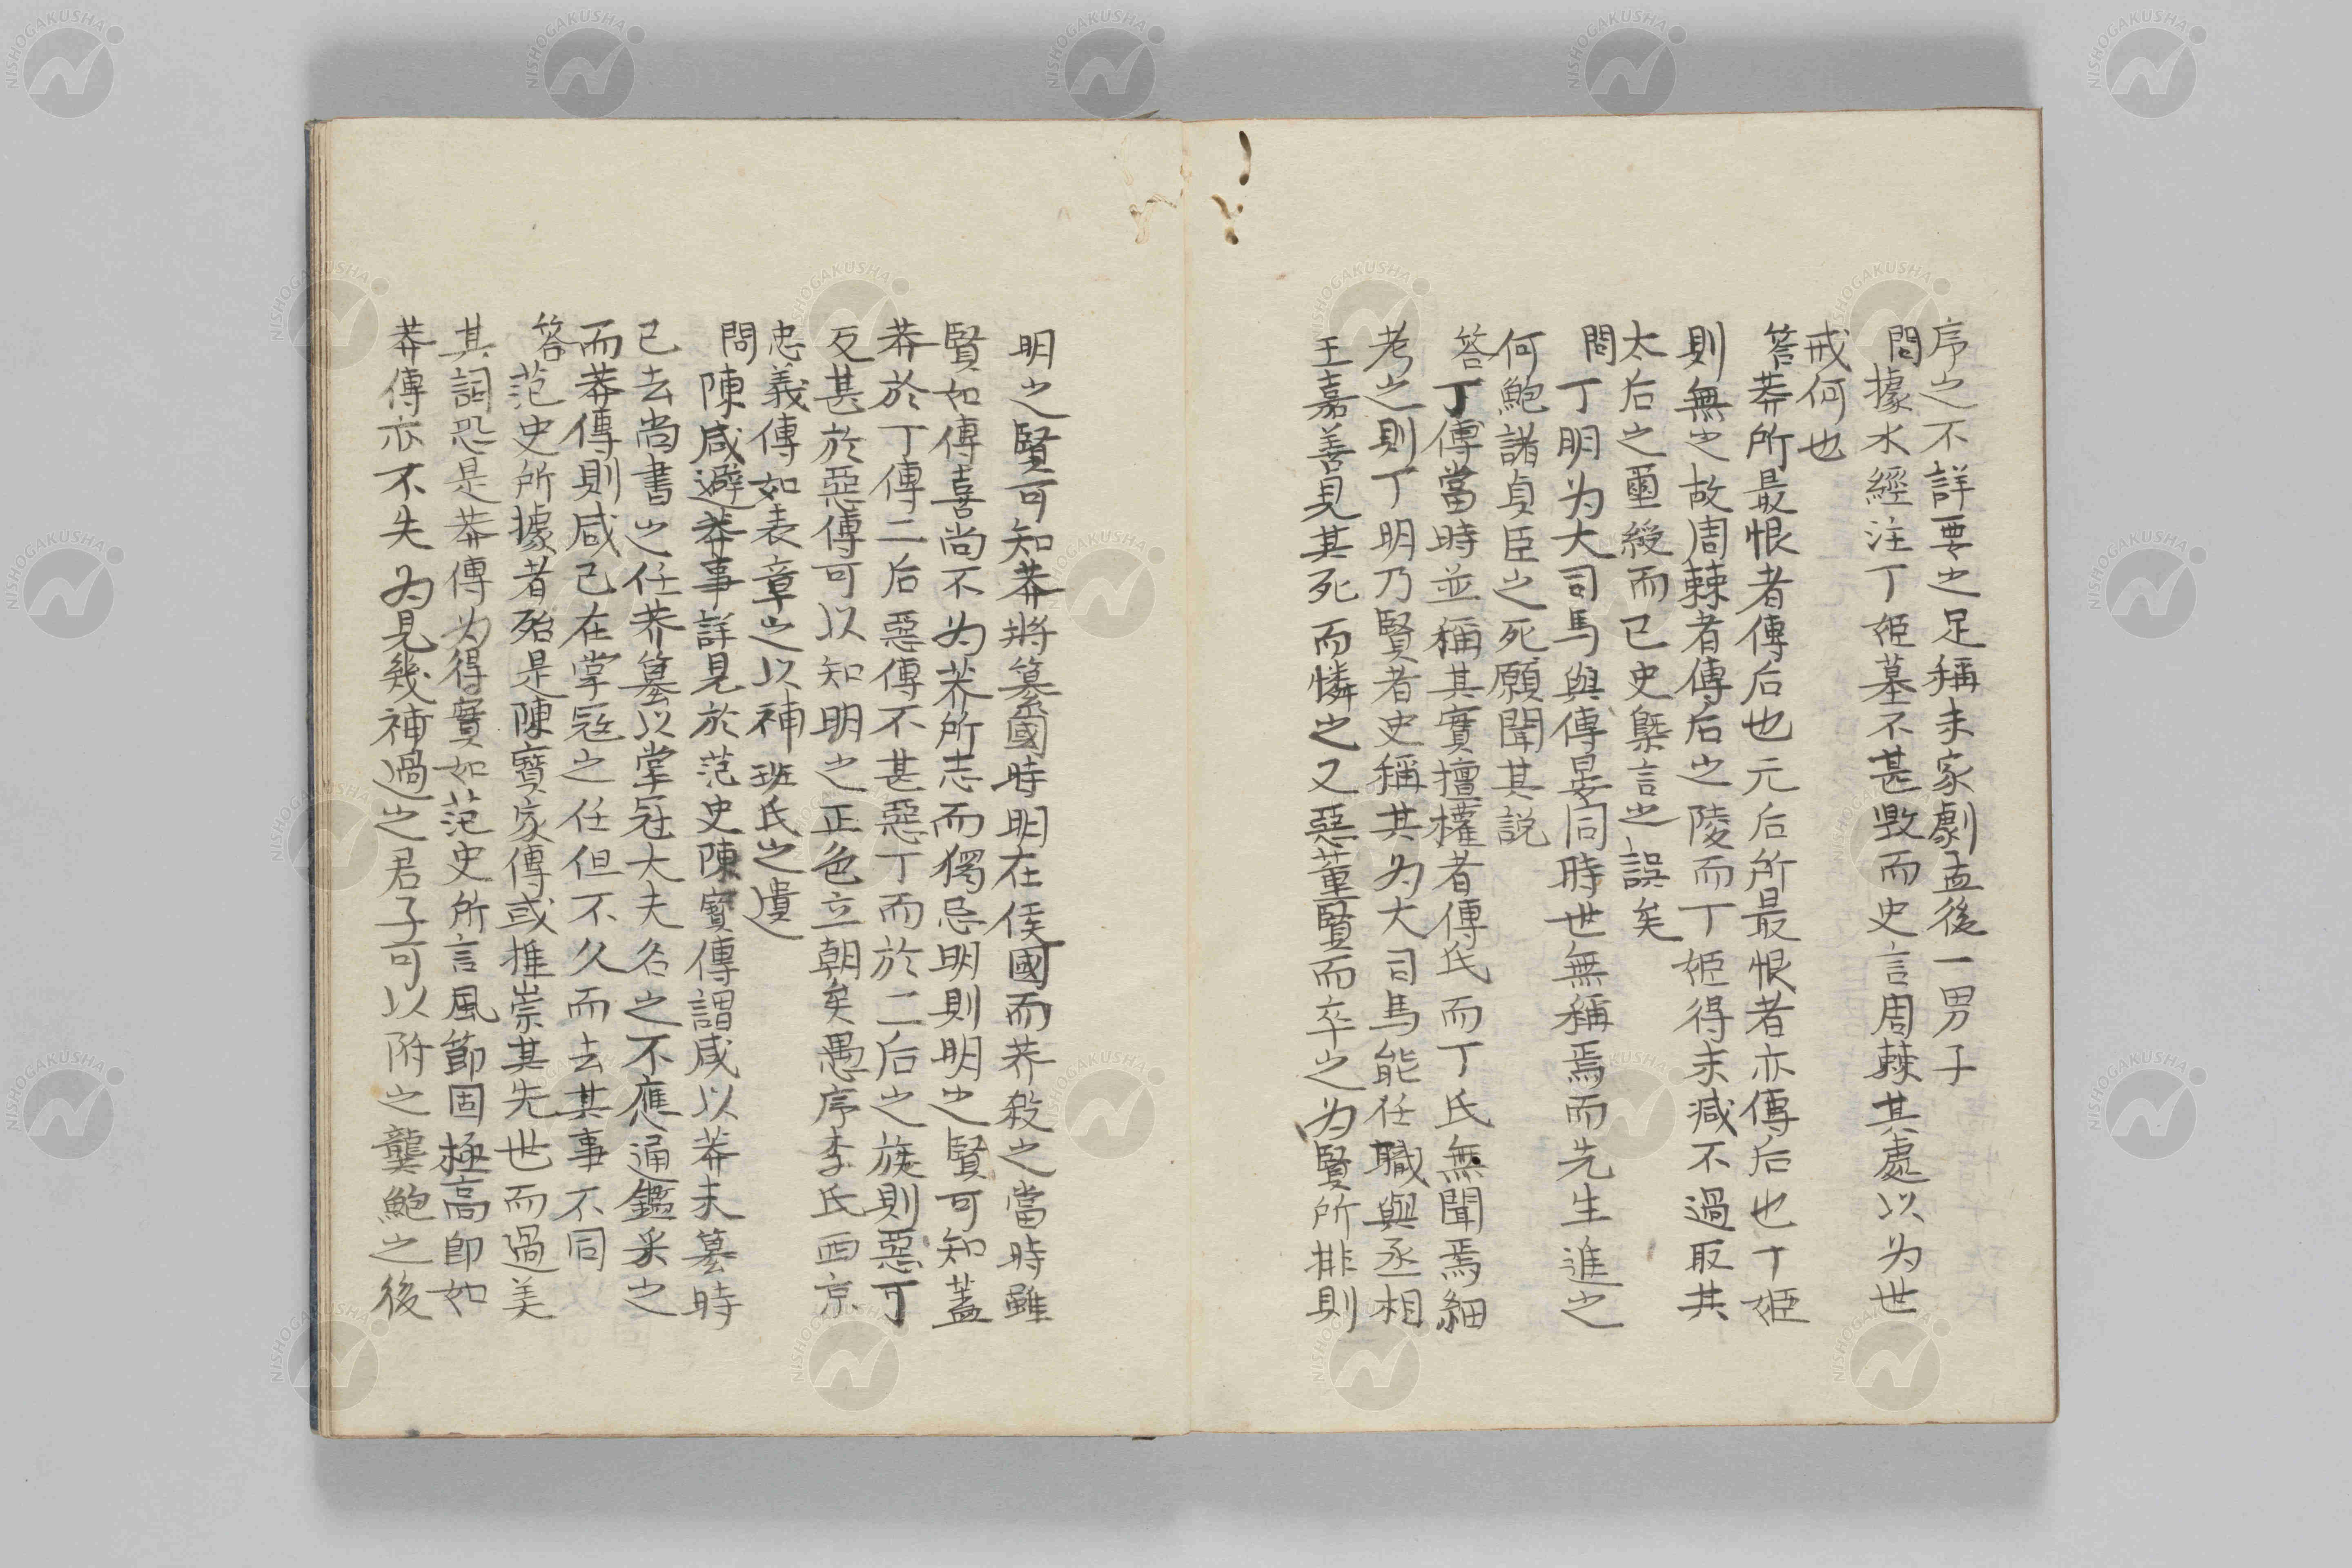 序之不詳要之足稱朱家劇孟後一男子
問據水經注丁姬墓不甚毀而史言周棘其處以为世
戒何也
答莽所最恨者傳后也元后所最恨者亦傳后也丁姬
則無之故周棘者傳后之陵而丁姬得末减不過取其
太后之璽綬而已史槩言之誤矣
問丁明为大司馬與傳晏同時世無稱焉而先生進之
何鮑諸貞臣之死願聞其説
答丁傳當時並稱其實擅權者傳氏而丁氏無聞焉細
考之則丁明乃賢者史稱其为大司馬能任職與丞相
王嘉善見其死而憐之又惡董賢而卒之为賢所排則
明之賢可知莽將篡國時明在侯國而莽殺之當時雖
賢如傳喜尚不为莽所志而獨忌明則明之賢可知蓋
莽於丁傳二后惡傳不甚惡丁而於二后之族則惡丁
反甚於惡傳可以知明之正色立朝矣愚序李氏西京
忠義傳如表章之以補班氏之遺
問陳咸避莽事詳見於范史陳寶傳謂咸以莽未篡時
已去尚書之任莽篡以掌冠大夫名之不應通鑑采之
而莽傳則咸已在掌冦之任但不久而去其事不同
答范史所據者殆是陳寶家傳或推崇其先世而過美
其詞恐是莽傳为得實如范史所言風節固極高即如
莽傳亦不失为見幾補過之君子可以附之龔鮑之後
NISHOGAKUSHA